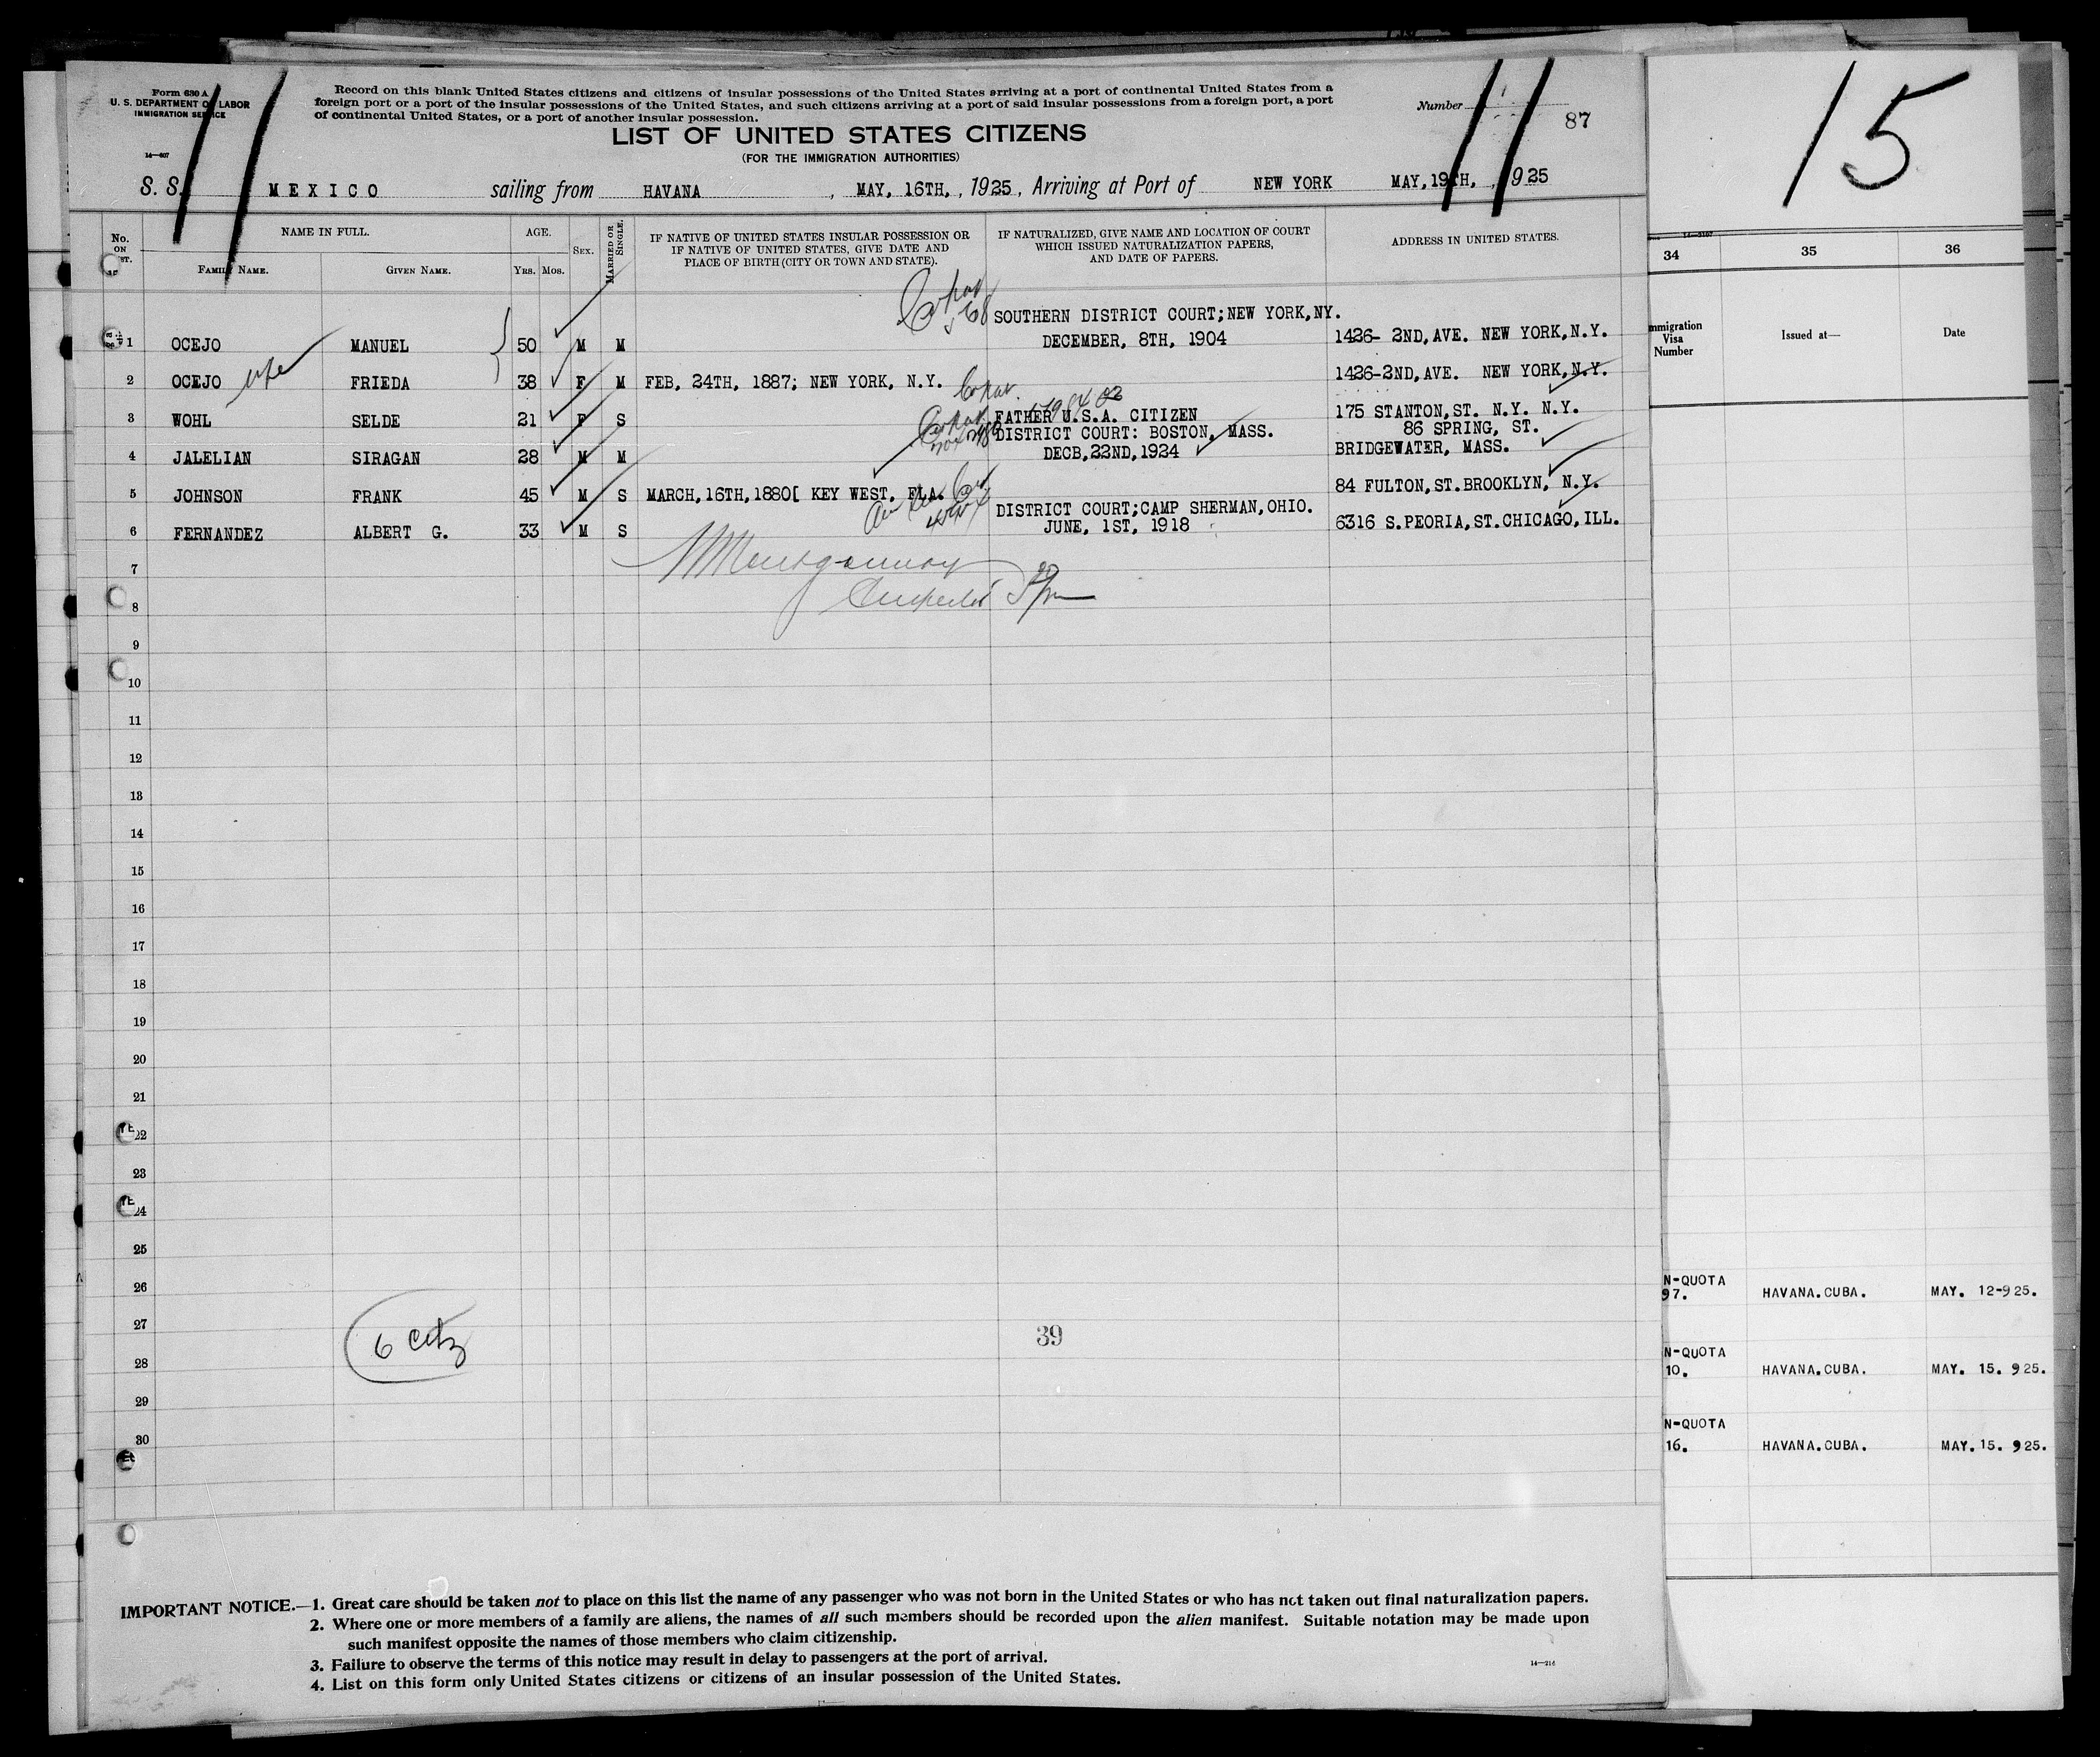 Form 630 A
U. S. DEPARTMENT OF LABOR
IMMIGRATION SERVICE
14—607
Record on this blank United States citizens and citizens of insular possessions of the United States arriving at a port of continental United States from a
foreign port or a port of the insular possessions of the United States, and such citizens arriving at a port of said insular possessions from a foreign port, a port
of continental United States, or a port of another insular possession.
LIST OF UNITED STATES CITIZENS
(FOR THE IMMIGRATION AUTHORITIES)
Number
87
11
11
15
S. S. MEXICO sailing from HAVANA, MAY, 16TH, , 1925, Arriving at Port of NEW YORK MAY,19TH, , 1925
No. ON LIST.
NAME IN FULL.
FAMILY NAME.
GIVEN NAME.
AGE.
YRS. MOS.
SEX.
MARRIED OR SINGLE.
IF NATIVE OF UNITED STATES INSULAR POSSESSION OR
IF NATIVE OF UNITED STATES, GIVE DATE AND
PLACE OF BIRTH (CITY OR TOWN AND STATE).
IF NATURALIZED, GIVE NAME AND LOCATION OF COURT
WHICH ISSUED NATURALIZATION PAPERS,
AND DATE OF PAPERS.
ADDRESS IN UNITED STATES.
SOUTHERN DISTRICT COURT;NEW YORK,NY.
1 OCEJO MANUEL 50 M M DECEMBER, 8TH, 1904 1426- 2ND,AVE. NEW YORK,N.Y.
2 OCEJO wife FRIEDA 38 F M FEB, 24TH, 1887; NEW YORK, N.Y. 1426-2ND,AVE. NEW YORK,N.Y.
3 WOHL SELDE 21 F S FATHER U.S.A. CITIZEN 175 STANTON,ST. N.Y. N.Y.
DISTRICT COURT: BOSTON, MASS. 86 SPRING, ST.
4 JALELIAN SIRAGAN 28 M M DECB,22ND,1924 BRIDGEWATER, MASS.
5 JOHNSON FRANK 45 M S MARCH,16TH,1880[ KEY WEST, FLA. 84 FULTON,ST.BROOKLYN, N.Y.
DISTRICT COURT;CAMP SHERMAN,OHIO.
6 FERNANDEZ ALBERT G. 33 M S JUNE, 1ST, 1918 6316 S.PEORIA,ST.CHICAGO,ILL.
7
Montgomery
8
9
10
11
12
13
14
15
16
17
18
19
20
21
22
23
24
25
26
27
28
29
30
6 citz
39
IMPORTANT NOTICE.—1. Great care should be taken not to place on this list the name of any passenger who was not born in the United States or who has not taken out final naturalization papers.
2. Where one or more members of a family are aliens, the names of all such members should be recorded upon the alien manifest. Suitable notation may be made upon
such manifest opposite the names of those members who claim citizenship.
3. Failure to observe the terms of this notice may result in delay to passengers at the port of arrival.
4. List on this form only United States citizens or citizens of an insular possession of the United States.
34 35 36
mmigration
Visa
Number
Issued at—
Date
N-QUOTA
97. HAVANA.CUBA. MAY. 12-925.
N-QUOTA
10. HAVANA.CUBA. MAY. 15. 925.
N-QUOTA
16. HAVANA.CUBA. MAY.15. 925.